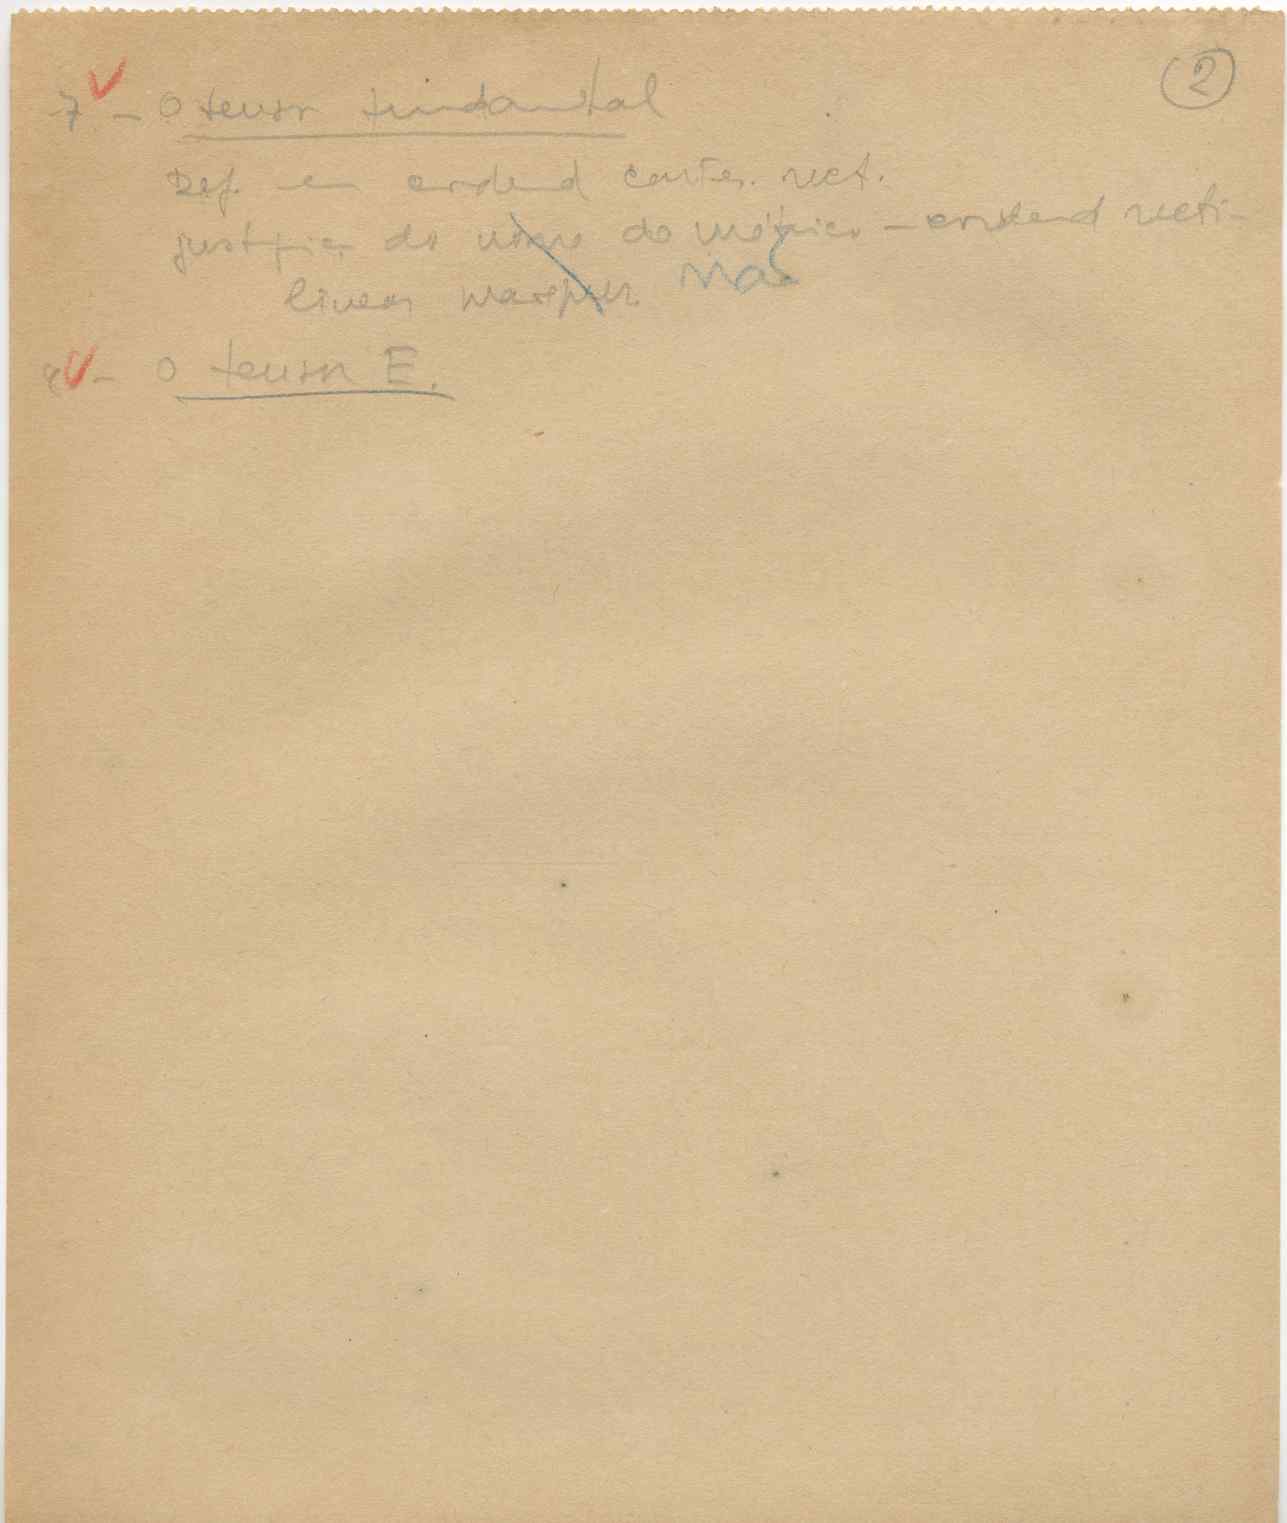 2
7 - O tensor fundamental
Def. em coordend cartes. rect.
justific do nome do métrico - coordend recti-
linear Não
8 - O tensor E.